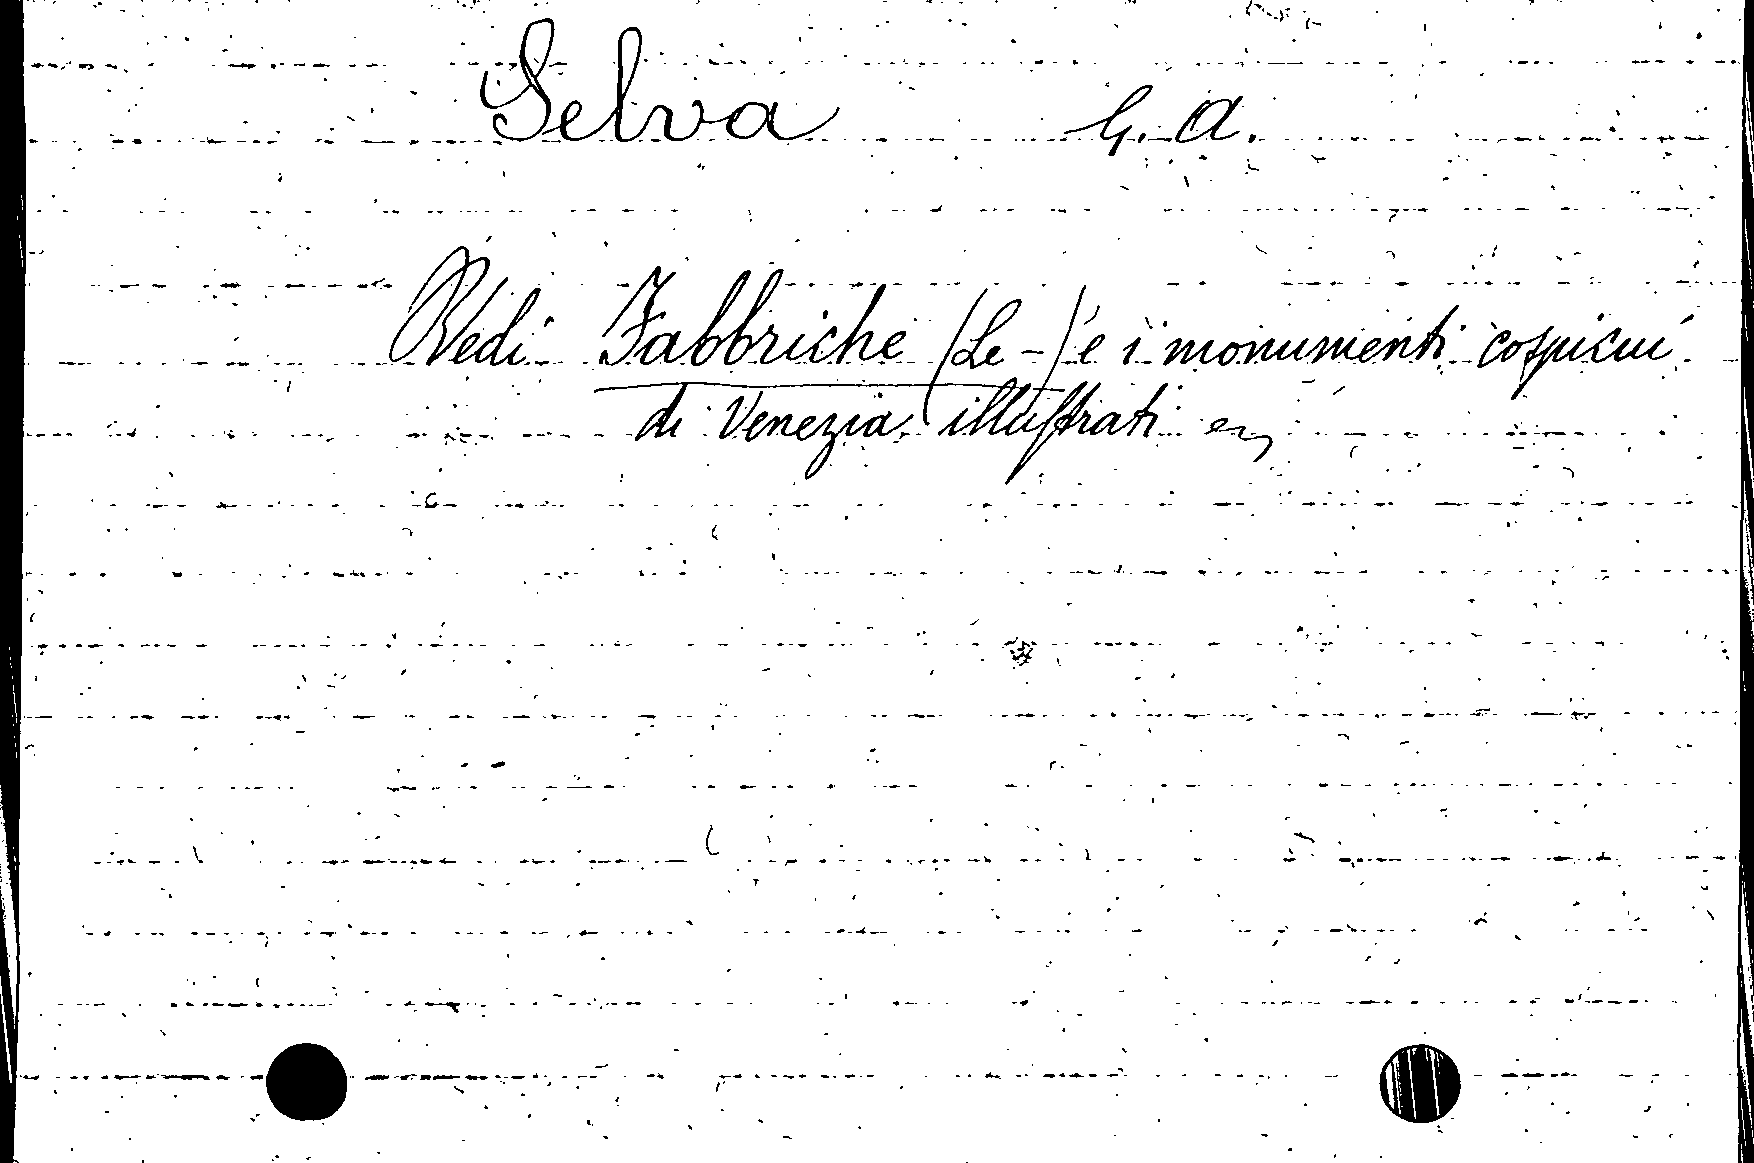 Selva G. A.
Vedi Fabbriche (Le -) e i monumenti cospicui
di Venezia illustrati